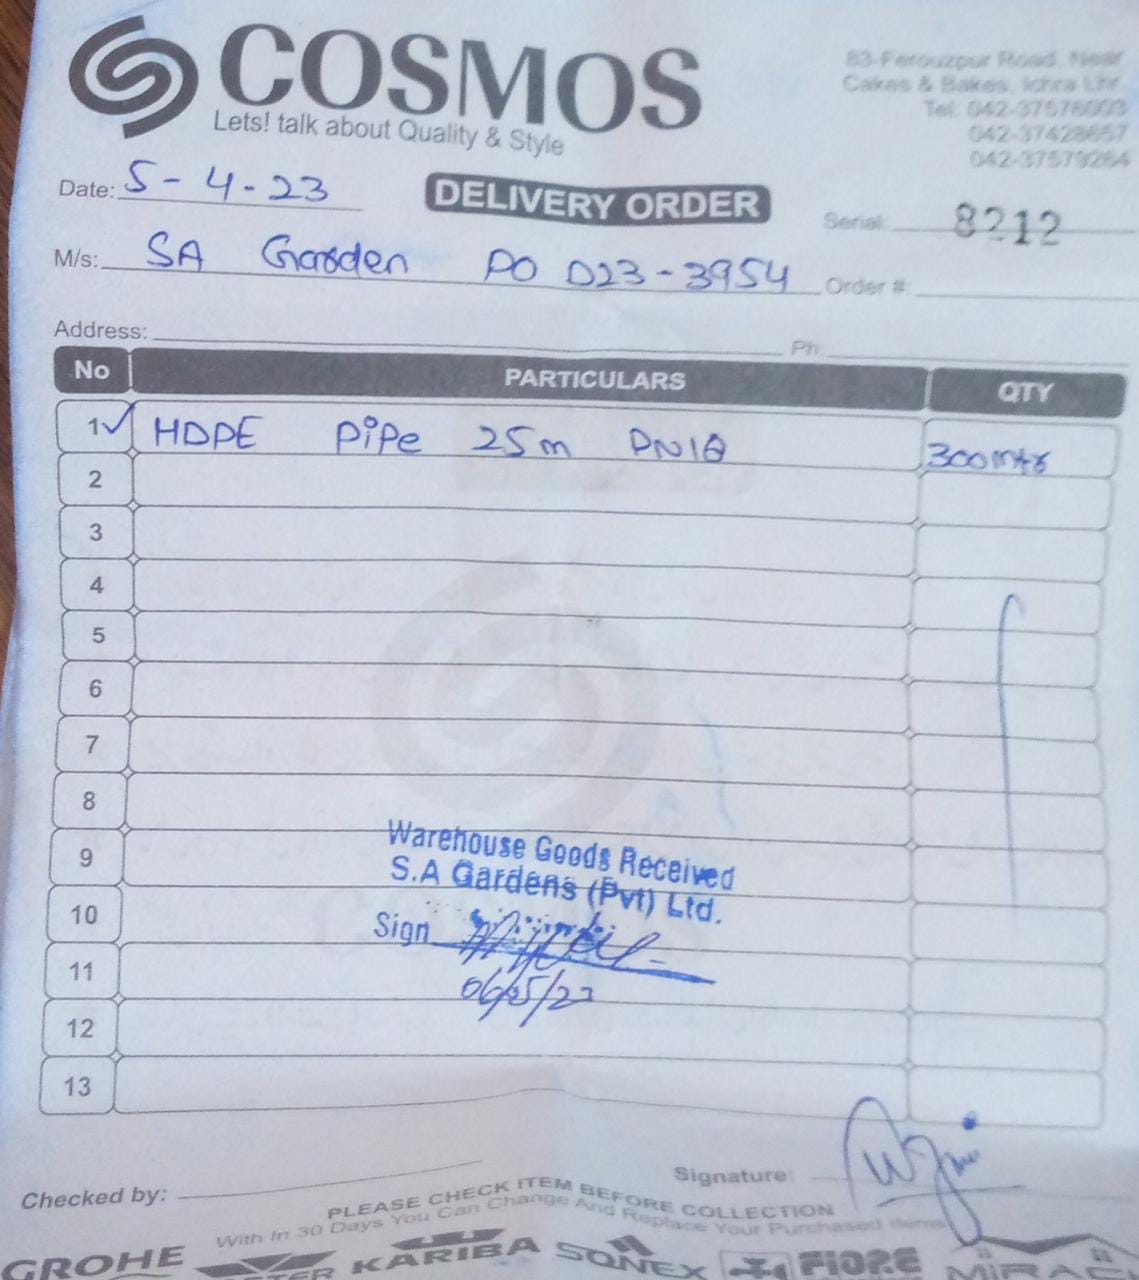 COSMOS
Lets! talk about Quality & Style
83-Ferouzpur Road, Near
Cakes & Bakes, Ichra Lhr.
Tel: 042-37576003
042-37428657
042-37579264
Date: 5-4-23
DELIVERY ORDER
Serial: 8212
M/s: SA Garden PO D23-3954 Order #:
Address: Ph:
No PARTICULARS QTY
1 ✓ HDPE Pipe 25m 300mtr
2
3
4
5
6
7
8
9
10
11
12
13
Warehouse Goods Received
S.A Gardens (Pvt) Ltd.
Sign
Checked by: Signature:
PLEASE CHECK ITEM BEFORE COLLECTION
With In 30 Days You Can Change And Replace Your Purchased Items
GROHE KARIBA SONEX FIORE